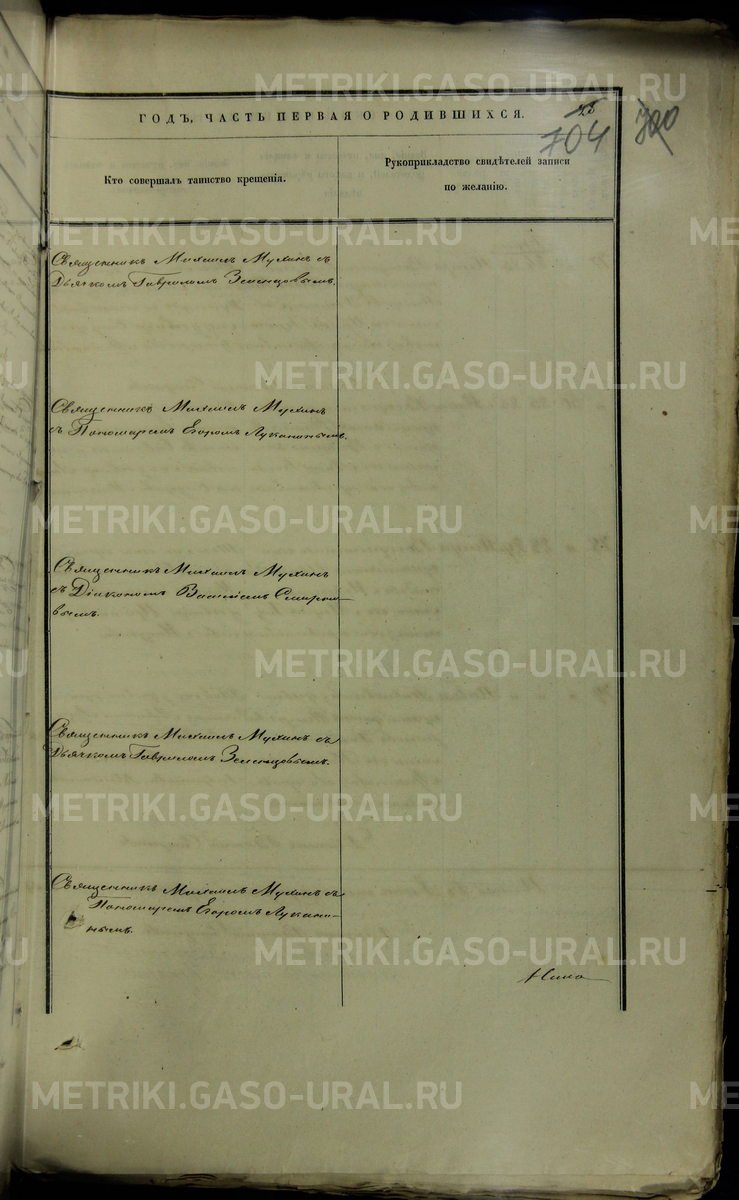 ГОДЪ, ЧАСТЬ ПЕРВАЯ О РОДИВШИХСЯ.
704 700
Кто совершалъ таинство крещенія.
Рукоприкладство свидѣтелей записи
по желанію.
Священникъ Михаилъ Мухинъ съ
Дьячкомъ Гаврiломъ Земенцовымъ.
Священникъ Михаилъ Мухинъ
съ Пономаремъ Егоромъ Луканинымъ.
Священникъ Михаилъ Мухинъ
съ Діакономъ Василіемъ Смирно-
вымъ.
Священникъ Михаилъ Мухинъ съ
Дьячкомъ Гаврiломъ Земенцовымъ.
Священникъ Михаилъ Мухинъ съ
Пономаремъ Егоромъ Лукани-
нымъ.
METRIKI.GASO-URAL.RU